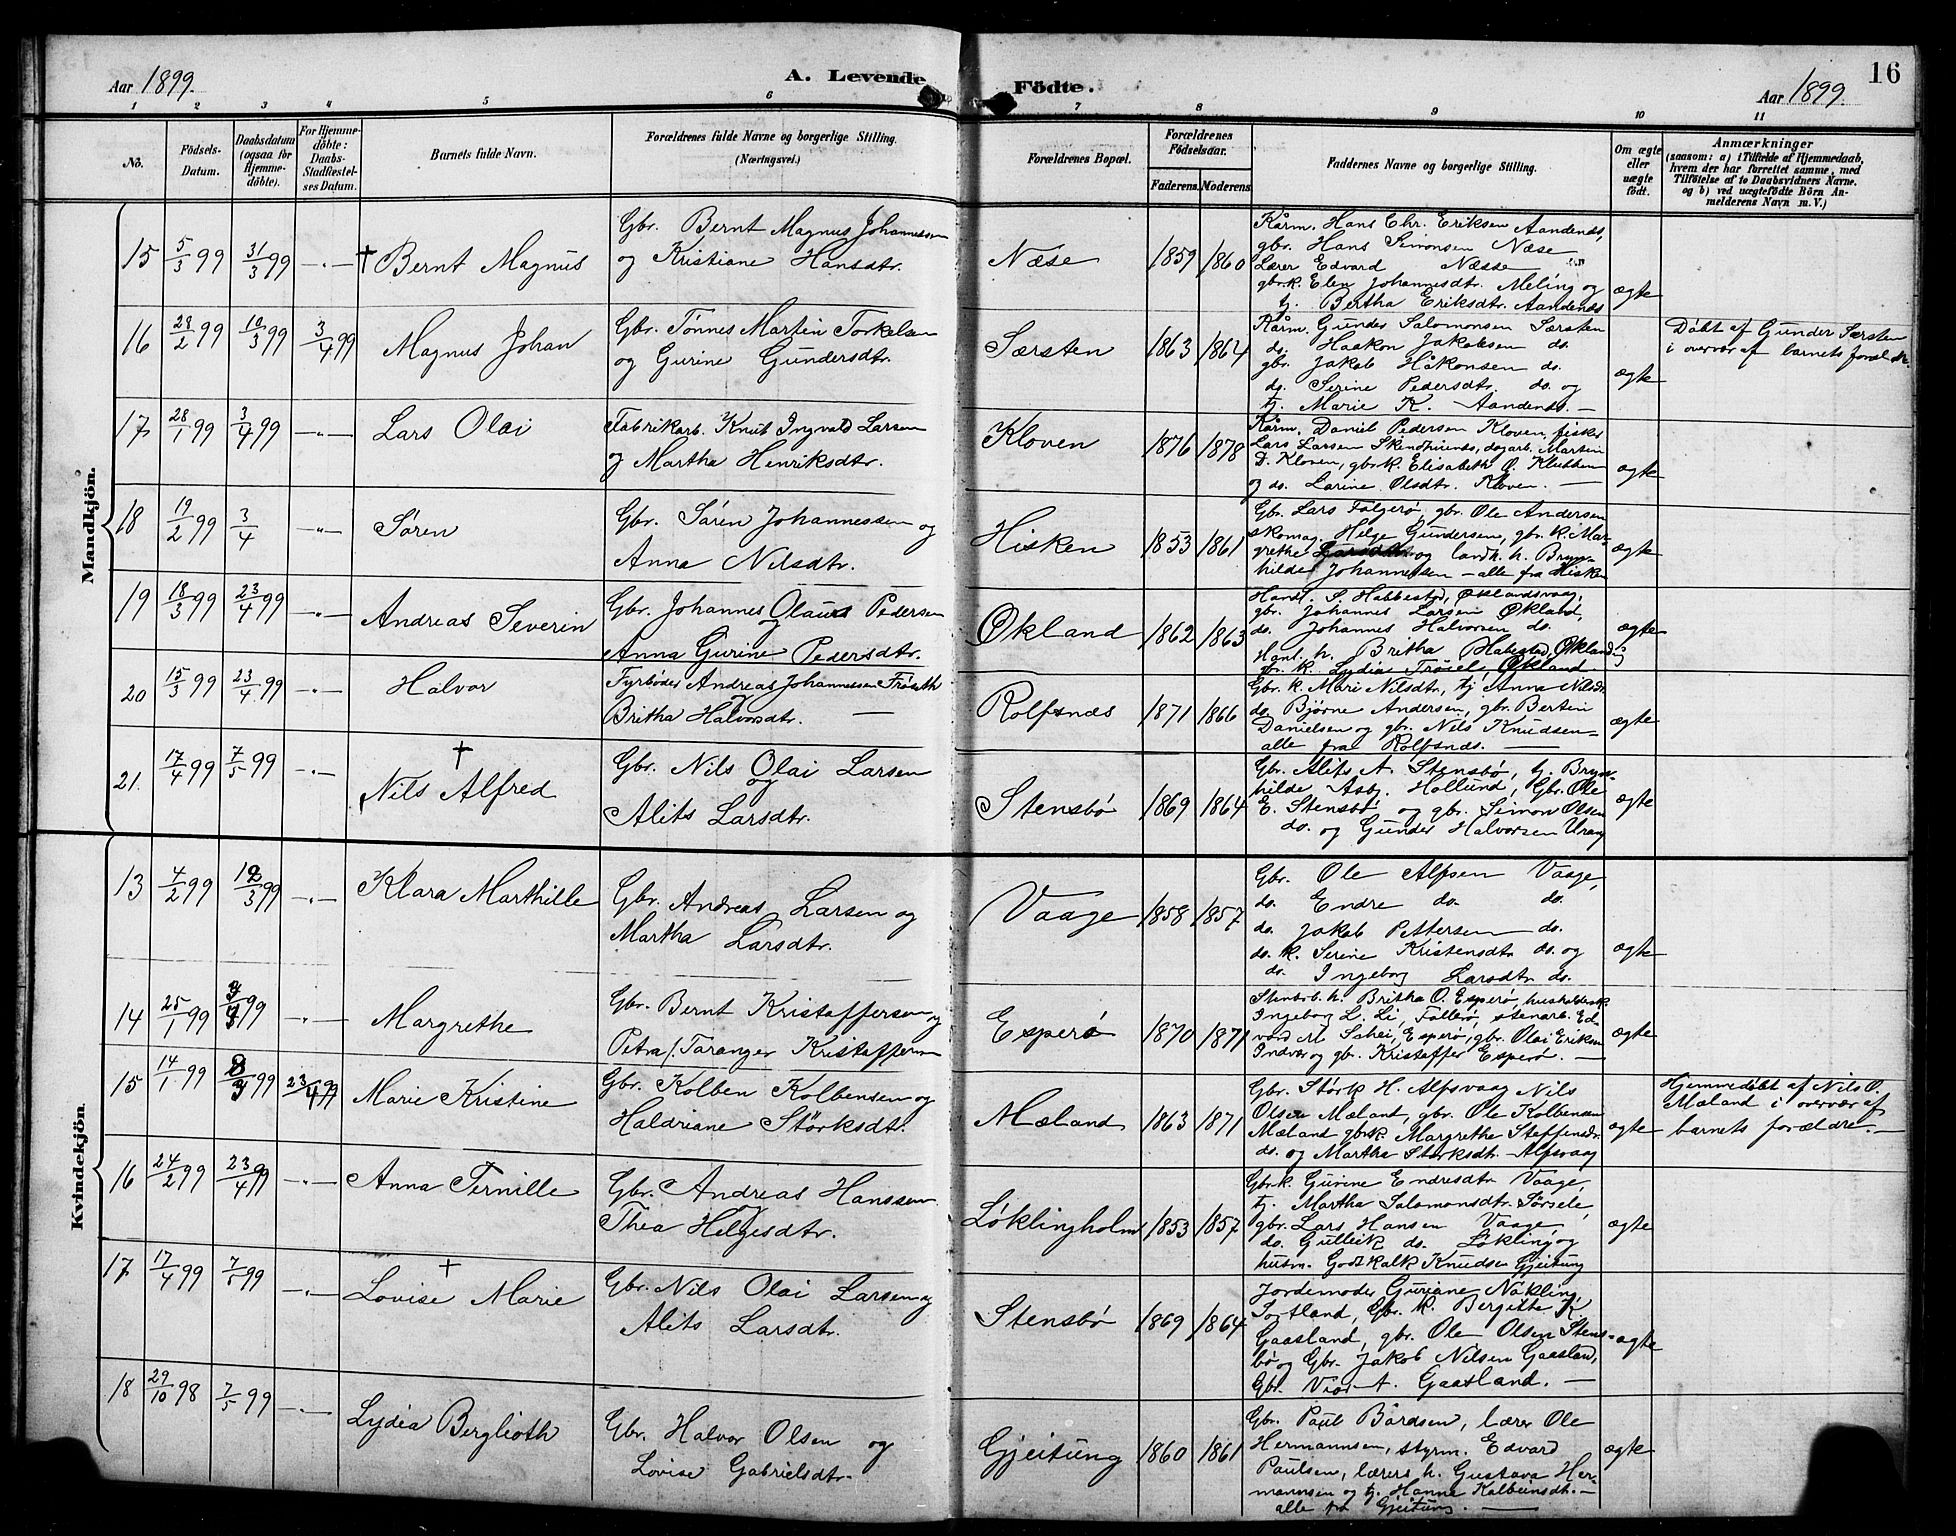 Aar 1899.
A. Levende Födte.
Aar 1899.
16
1 2 3 4 5 6 7 8 9 10 11
No.
Födsels-
Datum.
Daabsdatum
(ogsaa for
Hjemme-
döbte).
For Hjemme-
döbte:
Daabs-
Stadfæstel-
ses Datum.
Barnets fulde Navn.
Forældrenes fulde Navne og borgerlige Stilling.
(Næringsvei.)
Forældrenes Bopæl.
Forældrenes
Födselsaar.
Faderens. Moderens.
Faddernes Navne og borgerlige Stilling.
Om ægte
eller
uægte
födt.
Anmærkninger
(saasom: a) i Tilfælde af Hjemmedaab,
hvem der har forrettet samme, med
Tilföielse af to Daabsvidners Navne.
og b) ved uægtefödte Börn An-
melderens Navn m. V.)
Mandkjön.
15 5/3 99 31/3 99 -"- † Bernt Magnus
Gbr. Bernt Magnus Johannessen
og Kristiane Hansdtr.
Næse 1859 1860
Kårm. Hans Chr. Eriksen Aandenes,
gbr. Hans Simonsen Næse
Lærer Edvard Næsse
gbr.k. Elen Johannesdtr. Meling og
tj. Bertha Eriksdtr. Aandenes
ægte
16 28/2 99 10/3 99 3/4 99 Magnus Johan
Gbr. Tønnes Martin Torkelsen
og Gurine Gundersdtr.
Særsten 1863 1864
Kårm. Gunder Salomonsen Særsten
do. Haakon Jakobsen do.
gbr. Jakob Håkonsen do.
do. Serine Pedersdtr. do. og
tj. Marie K. Aandenes. —
ægte
Döbt af Gunder Særsten
i overvær af barnets foræld
17 28/1 99 3/4 99 -"- Lars Olai
Fabrikarb. Knut Ingvald Larsen
og Martha Henriksdtr.
Kloven 1876 1878
Kårm. Daniel Pedersen Kloven, fisker
Lars Larsen, dagarb. Martin
D. Kloven, gbr.k. Elisabeth O. Klubben
og do. Larine Olsdtr. Kloven. —
ægte
18 19/2 99 3/4 -"- Søren
Gbr. Søren Johannessen og
Anna Nilsdtr.
Hisken 1853 1861
Gbr. Lars Folgerø, gbr. Ole Andersen
skomag. Helge Gundersen, gbr. k. Mar-
grethe og landh. h. Bryn-
hilde Johannessen — alle fra Hisken
ægte
19 18/3 99 23/4 99 -"- Andreas Severin
Gbr. Johannes Olaus Pedersen
og
Anna Gurine Pedersdtr.
Økland 1862 1863
Handl. S. Habbestad, Øklandsvaag,
gbr. Johannes Larsen Økland,
do. Johannes Halvorsen do.
Hanl. h. Britha Habestad, Økland
gbr. k. Lydia, Økland
ægte
20 15/3 99 23/4 99 -"- Halvor
Fyrbøder Andreas Johannessen
og
Britha Halvorsdtr. —
Rolfsnes 1871 1866
Gbr. k. Mari Nilsdtr, tj Anna Nilsdr
do. Bjørne Andersen, gbr. Bertin
Danielsen og gbr. Nils Knudsen —
alle fra Rolfsnes. —
ægte
21. 17/4 99 7/5 99 -"- † Nils Alfred
Gbr. Nils Olai Larsen
og
Alits Larsdtr.
Stensbø 1869 1864
Gbr. Alits A. Stensbø, tj. Bryn-
hilde Asbj. Hollund, Gbr. Ole
E. Stensbø og gbr. Simon Olsen
do. og Gunder Halvorsen Urang
ægte
Kvindekjön.
13 4/2 99 12/3 99 -"- Klara Marthille
Gbr. Andreas Larsen og
Martha Larsdtr.
Vaage 1858 1857
Gbr. Ole Alfsen Vaage,
do. Endre do. do.
do. Jakob Pettersen do.
do. k. Serine Kristensdtr do. og
do. Ingeborg Larsdtr. do.
ægte
14 25/1 99 99 -"- Margrethe
Gbr. Bernt Kristaffersen og
Petra f. Taranger Kristaffersen
Esperø 1870 1871
Stensb. h. Britha O. Esperø, husholdersk.
Ingeborg L. Li, Follerø, stenarb. Ed-
vard M. Schei, Esperø, gbr. Olai Eriksen
Indvær og gbr. Kristaffer Esperø. —
ægte
15 14/1 99 8/3 99 23/4 99 Marie Kristine
Gbr. Kolben Kolbensen og
Haldriane Størksdtr.
Mæland 1863 1871
Gbr. Størk H. Alfsvaag Nils
Olsen Mæland, gbr. Ole Kolbensen
Mæland gbr.k. Margrethe Steffensdr.
do. og Martha Størksdtr. Alfsvaag
ægte
Hjemmedøbt af Nils O.
Mæland i overvær af
barnets forældre. —
16 24/2 99 23/4 99 -"- Anna Pernille
Gbr. Andreas Hanssen
og
Thea Helgesdtr.
Løklingholm 1853 1857
Gbr.k. Gurine Endresdtr Vaage
tj. Martha Salomonsdtr. Sørsele,
gbr. Lars Hansen Vaage,
do. Gulleik do. Løkling og
husm. Godtkalk Knudsen Gjeitung
ægte
17 17/4 99 7/5 99 -"- † Lovise Marie
Gbr. Nils Olai Larsen og
Alits Larsdtr.
Stensbø 1869 1864
Jordemoder Guriane Nökling,
Sortland, Gbr. k. Bergitte K.
Gaasland, gbr. Ole Olsen Stens-
bø og Gbr. Jakob Nilsen Gaasland,
Gbr. Vier A. Gaasland. —
ægte
18 29/10 98 7/5 99 -"- Lydia Berglioth
Gbr. Halvor Olsen og
Lovise Gabrielsdtr.
Gjeitung 1860 1861
Gbr. Paul Bårdsen, lærer Ole
Hermannsen, styrm. Edvard
Paulsen, lærers h. Gustava Her-
mannsen og tj. Hanne Kolbeinsdtr. —
alle fra Gjeitung. —
ægte